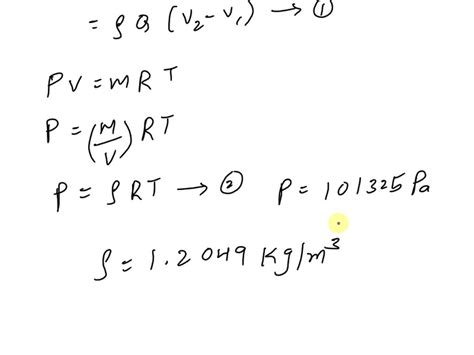 = ρ Q (V₂ - V₁) → ①
PV = mRT
P = (M/V) RT
P = ρRT → ② P = 101325 Pa
ρ = 1.2049 Kg/m³